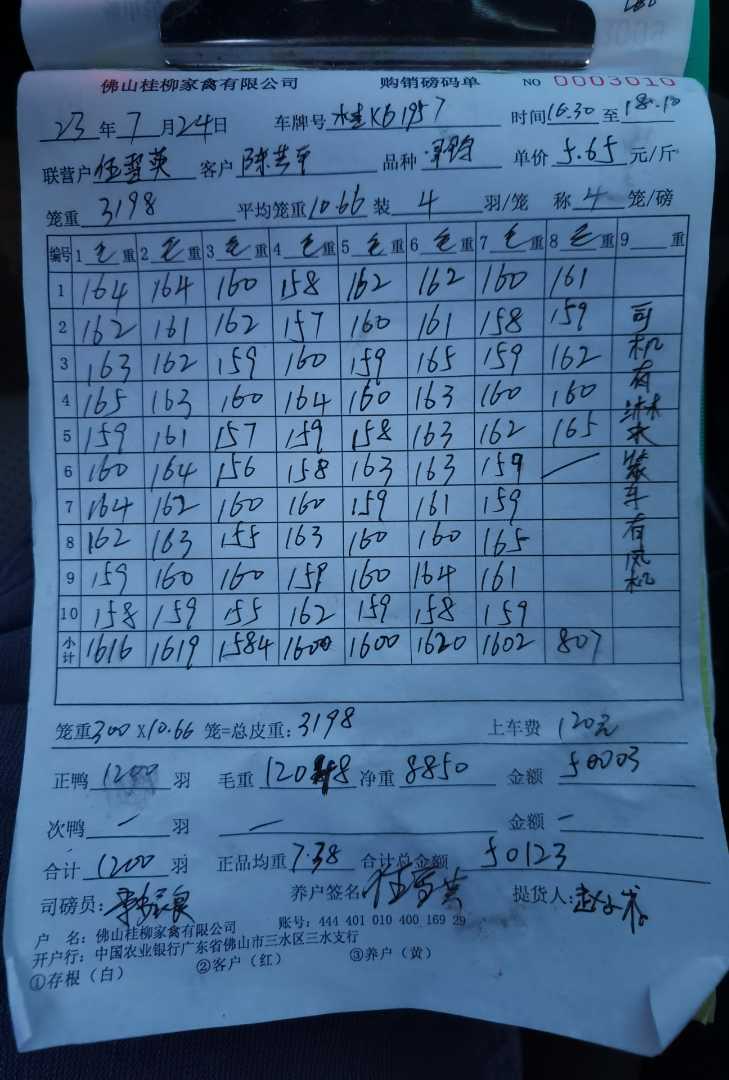 佛山桂柳家禽有限公司 购销磅码单 NO 0003010
23年7月24日 车牌号 K61957 时间16.30至18.10
联营户 伍雪英 客户 品种 单价 5.65 元/斤
笼重 3198 平均笼重10.66 装 4 羽/笼 称 4 笼/磅
编号 1毛重 2毛重 3毛重 4毛重 5毛重 6毛重 7毛重 8毛重 9 重
1 164 164 160 158 162 162 160 161
2 162 161 162 157 160 161 158 159
3 163 162 159 160 159 165 159 162
4 165 163 160 164 160 163 160 160
5 159 161 157 159 158 163 162 165
6 160 164 156 158 163 163 159 —
7 164 162 160 160 159 161 159
8 162 163 155 163 160 160 165
9 159 160 160 159 160 164 161
10 158 159 155 162 159 158 159
小计 1616 1619 1584 1600 1600 1620 1602 807
司机有淋水装车有风机
笼重300X10.66 笼=总皮重:3198 上车费 120元
正鸭 1200 羽 毛重 12048 净重 8850 金额 50003
次鸭 — 羽 — 金额 —
合计 1200 羽 正品均重7.38 合计总金额 50123
司磅员: 养户签名:伍雪英 提货人:
户 名:佛山桂柳家禽有限公司 账号:444 401 010 400 169 29
开户行:中国农业银行广东省佛山市三水区三水支行
①存根(白) ②客户(红) ③养户(黄)